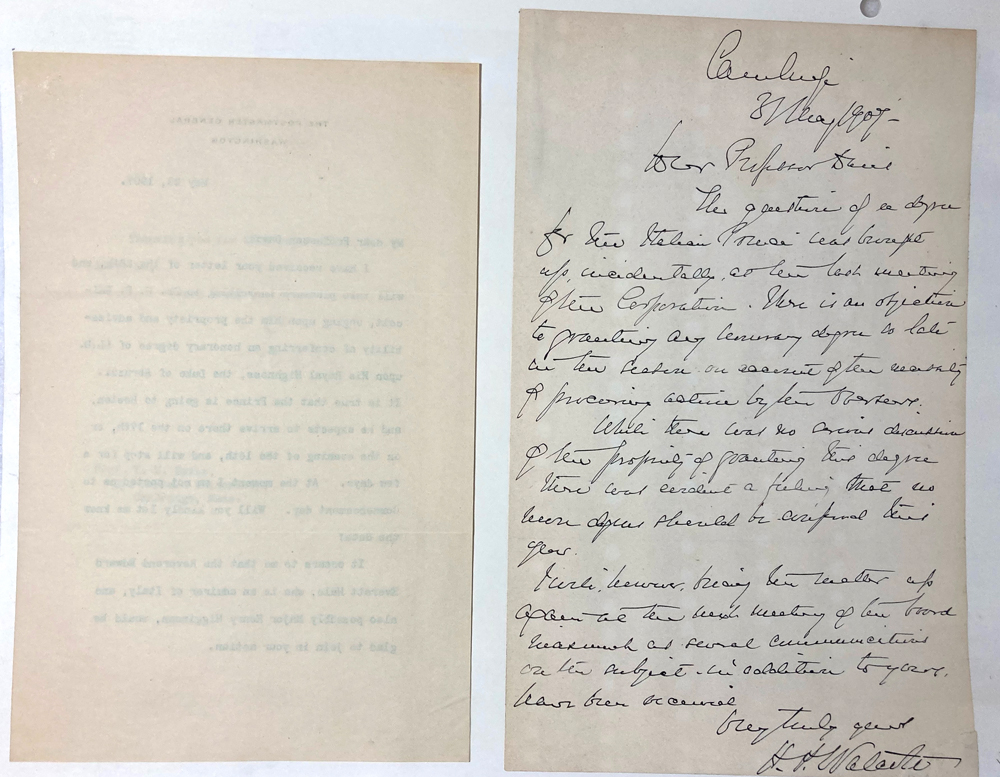 THE POSTMASTER GENERAL
WASHINGTON
May
My dear Professor
I have received your letter of the and
will
cott, urging upon the propriety and advisa-
bility of conferring an honorary degree of
upon His Royal Highness, the Duke of Abruzzi.
It is true that the Prince is going to Boston,
and he expects to arrive there on the or
on the evening of the 16th, and will stop for a
few days. At the moment I am not posted as to
Commencement day. Will you kindly let me know
the date?
It occurs to me that the Reverend Edward
Everett Hale, who is an admirer of Italy, and
also possibly Major Henry Higginson, would be
glad to join in your motion.
Cambridge
31 May 1907-
Dear Professor Davis
The question of a degree
for the Italian Prince was brought
up, incidentally, at the last meeting
of the Corporation. There is an objection
to granting any honorary degree so late
in the season on account of the necessity
of procuring action by the Overseers.
While there was no serious discussion
of the propriety of granting this degree
there was evident a feeling that no
more degrees should be conferred this
year.
I will, however, bring the matter up
again at the next meeting of the board
inasmuch as several communications
on the subject, in addition to yours,
have been received
Very truly yours
H. P. Walcott